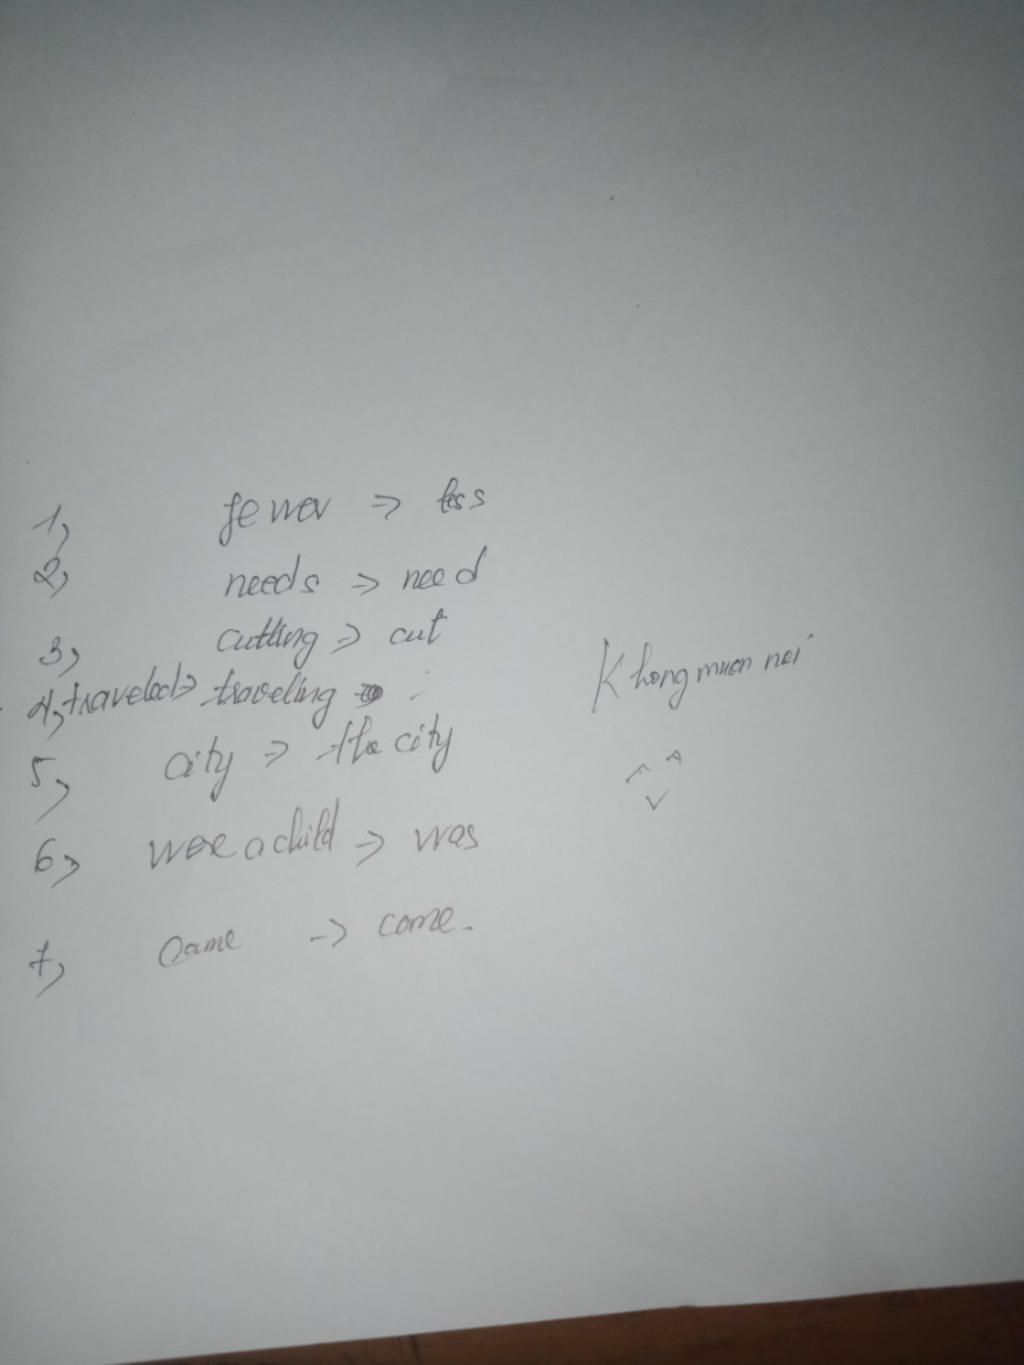 1, fewer => less
2, needs => need
3, cutting => cut
4, traveled => traveling
5, city => the city
6, were a child => was
7, came -> come.
Khong muon noi